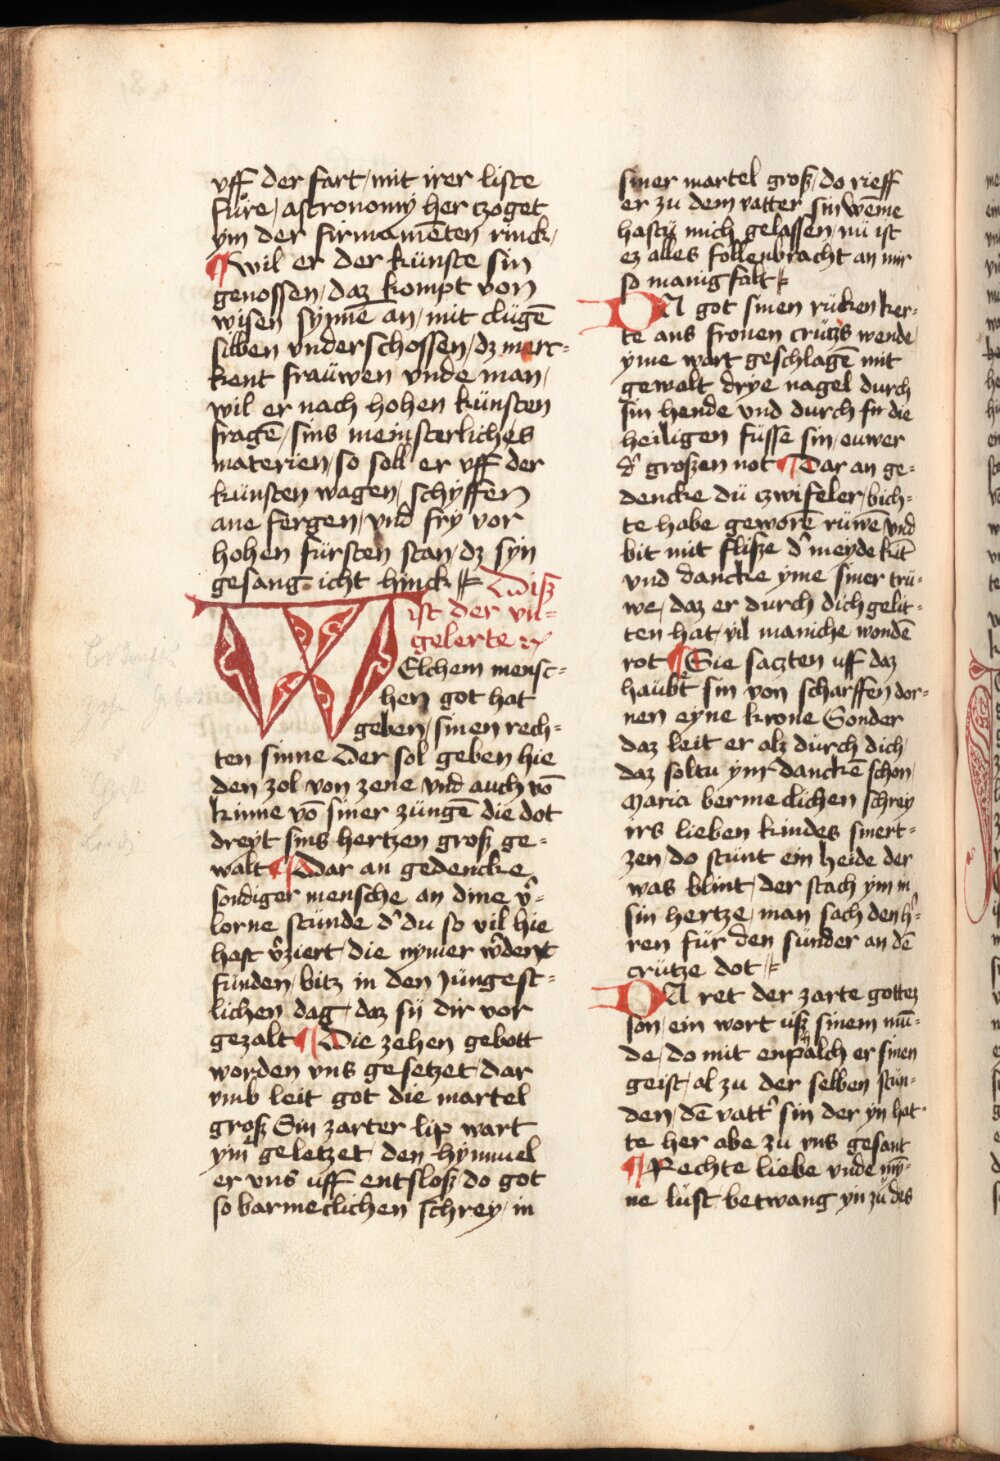 vff der fart / mit irer liste
fure / astronomy her czoget
ym der firmamēten rinck /
¶ wil er der künste sin
genossen / daz kompt von
wisen synnē an / mit clügē
silben vnderschossen / dz merc=
kent fraüwen vnde man /
wil er nach hohen künsten
fragē / sins meinsterliches
materien / so soll er vff der
künsten wagen / schyffen
ane fergen / vnd fry vor
hohen fürsten stan / dz syn
gesang icht hinck Diß
ist der vn=
gelerte
WElchem mensc=
hen got hat
geben / sinen rech=
ten sinne Der sol geben hie
den zol von zene vnd auch vō
kinne vō siner züngē die dot
dreyt sins hertzen groß ge=
walt ¶ Dar an gedencke
sondiger mensche an dine v̄=
lorne stunde d' du so vil hie
hast v̄ziert / die nymer w̄dent
funden / bitz in den Jüngest=
lichen dag / daz sij dir vor
gezalt ¶ Die zehen gebott
worden vns gesetzet / dar
vmb leit got die martel
groß Sin zarter lip wart
ym geletzet den hymmel
er vns uff entsloß / do got
so barmeclichen schrey / in
siner martel groß / do rieff
er zu dem vatter sin wēme
hastu mich gelassen / nü ist
ez alles follenbracht an mir
so manig falt
DA got sinen rücken ker=
te ans fronen crützs wende
yme wart geschlagē mit
gewalt drye nagel durch
sin hende vnd durch fir die
heiligen füsse sin / euwer
d' großen not ¶ Dar an ge=
dencke dü czwifeler / bich=
te habe geworē rüwē vnd
bit mit fliße d' meyde kīt
vnd dancke yme siner trü=
we / daz er durch dich gelit=
ten hat / vil maniche wondē
rot ¶ Sie saczten uff daz
haubt sin von scharffen dor=
nen eyne krone Sonder
daz leit er alz durch dich /
daz soltu ym danckē schon /
Maria bermeclichen schrey
irs lieben kindes smert=
zen / do stunt ein heide der
was blint / der stach ym in
sin hertze / man sach den h'=
ren für den sünder an dē
crütze dot /
DA ret der zarte gottez
son / ein wort uß sinem mū=
de / do mit enpalch er sinen
geist / al zu der selben stun=
den / dē vatt' sin der yn hat=
te her abe zu vns gesant
¶ Rechte liebe vnde my̅=
ne lüst / betwang yn zü des